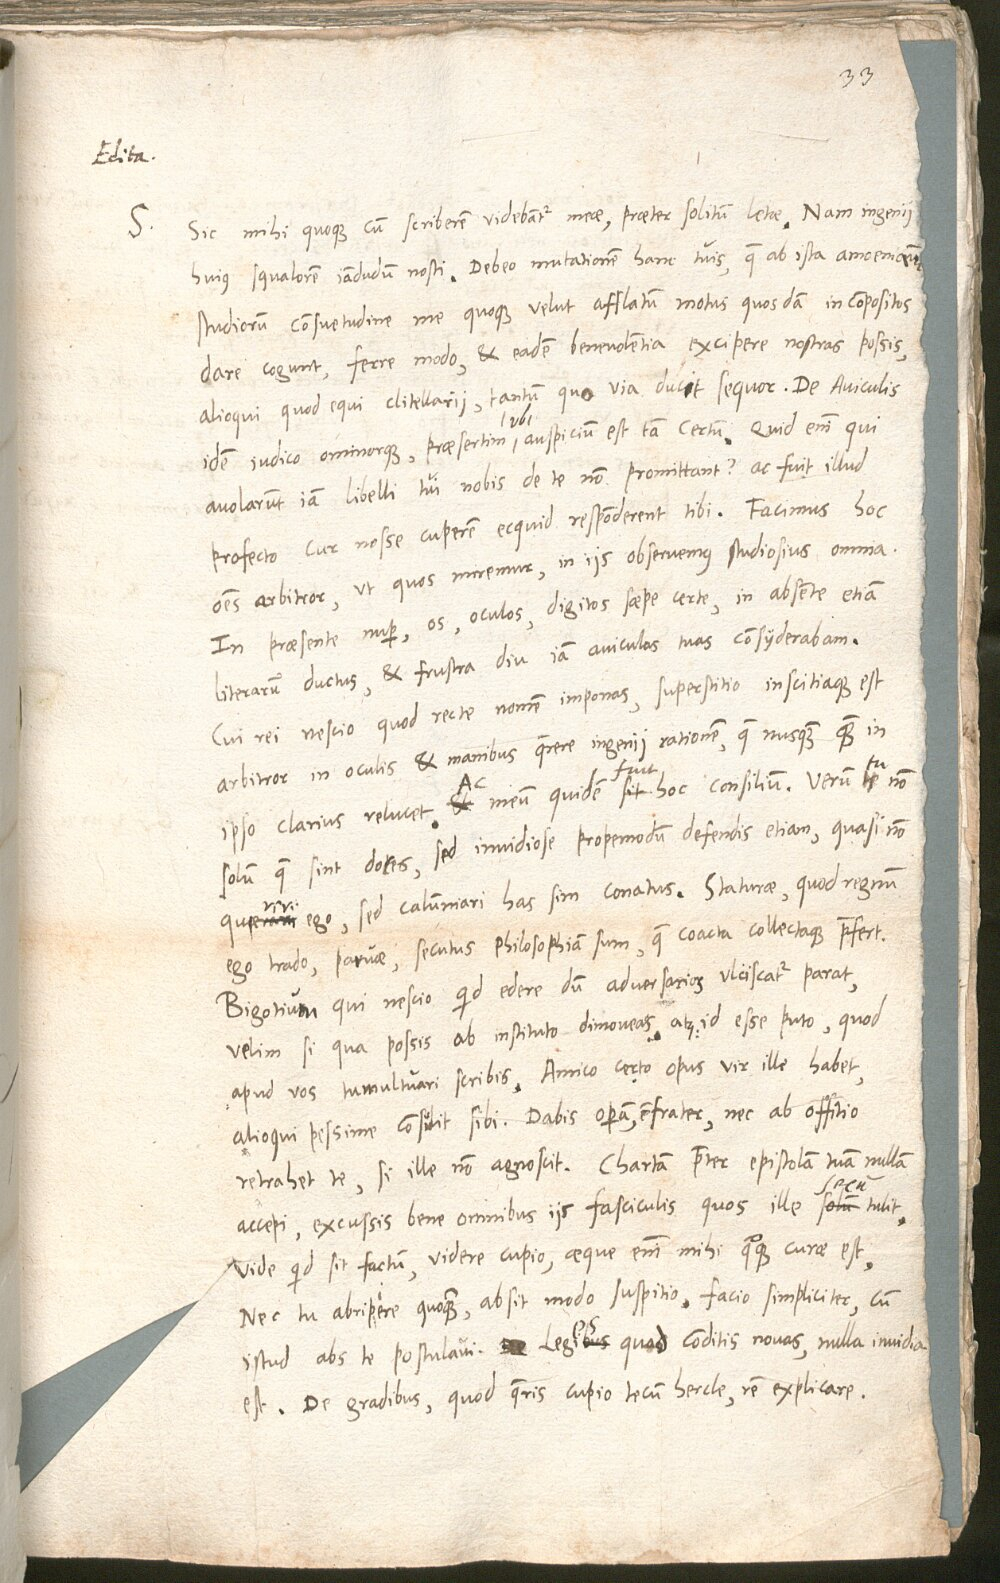 33
Edita.
S. Sic mihi quoque cũ scriberẽ videbãtʳ meæ, præter solitũ lętæ. Nam ingenij
huiꝰ squalorẽ iãdudũ nosti. Debeo mutationẽ hanc tuis, q̃ ab ista amoeniorũ
studiorũ cõsuetudine me quoqꝫ velut afflatũ motus quosdã incõpositos
dare cogunt, ferre modo, & eadẽ benevolẽtia excipere nostras possis,
alioqui quod equi clitellarij, tantũ quo via ducit sequor. De Auiculis
idẽ iudico ominorqꝫ, præsertim vbi auspiciũ est tã certũ. Quid eni͂ qui
auolarũt iã libelli tui nobis de te nõ promittant? ac fuit illud
profecto cur nosse cuperẽ ecquid respõderent tibi. Facimus hoc
oẽs arbitror, vt quos miremur, in ijs obseruemꝰ studiosius omnia.
In præsente nup̱, os, oculos, digitos sæpe certe, in absẽte etiã
literarũ ductus, & frustra diu iã auiculas tuas cõsyderabam.
Cui rei nescio quod recte nomẽ imponas, superstitio inscitiaqꝫ est
arbitror in oculis & manibus q̃rere ingenij rationẽ, q̃ nusqꝫ̃ qꝫ̃ in
ipso clarius relucet. Ac meũ quidẽ fuit hoc consiliũ. Verũ tu nõ
solũ q̃ sint dotes, sed inuidiose propemodũ defendis etiam, quasi nõ
ego, sed calũniari has sim conatus. Staturæ, quod regnũ
ego trado, paruæ, secutus philosophiã sum, q̃ coacta collectaqꝫ p̃fert.
Bigotium qui nescio qͥd edere dũ adversarios vlciscatʳ parat,
velim si qua possis ab instituto dimoueas, atqꝫ id esse puto, quod
apud vos tumultuari scribis. Amico certo opus vir ille habet,
alioqui pessime cõsulit sibi. Dabis op̱ã, frater, nec ab offitio
retrahet te, si ille nõ agnoscit. Chartã p̃ter epistolã tuã nullã
accepi, excussis bene omnibus ijs fasciculis quos ille secũ tulit.
Vide qͥd sit factũ, videre cupio, æque eni͂ mihi quoqꝫ curæ est.
Nec tu abripere quoqꝫ̃, absit modo suspitio. facio simpliciter, cũ
istud abs te postulaui. Leges quod cõditis nouas, nulla inuidia
est. De gradibus, quod q̃ris cupio tecũ hercle, rẽ explicare.